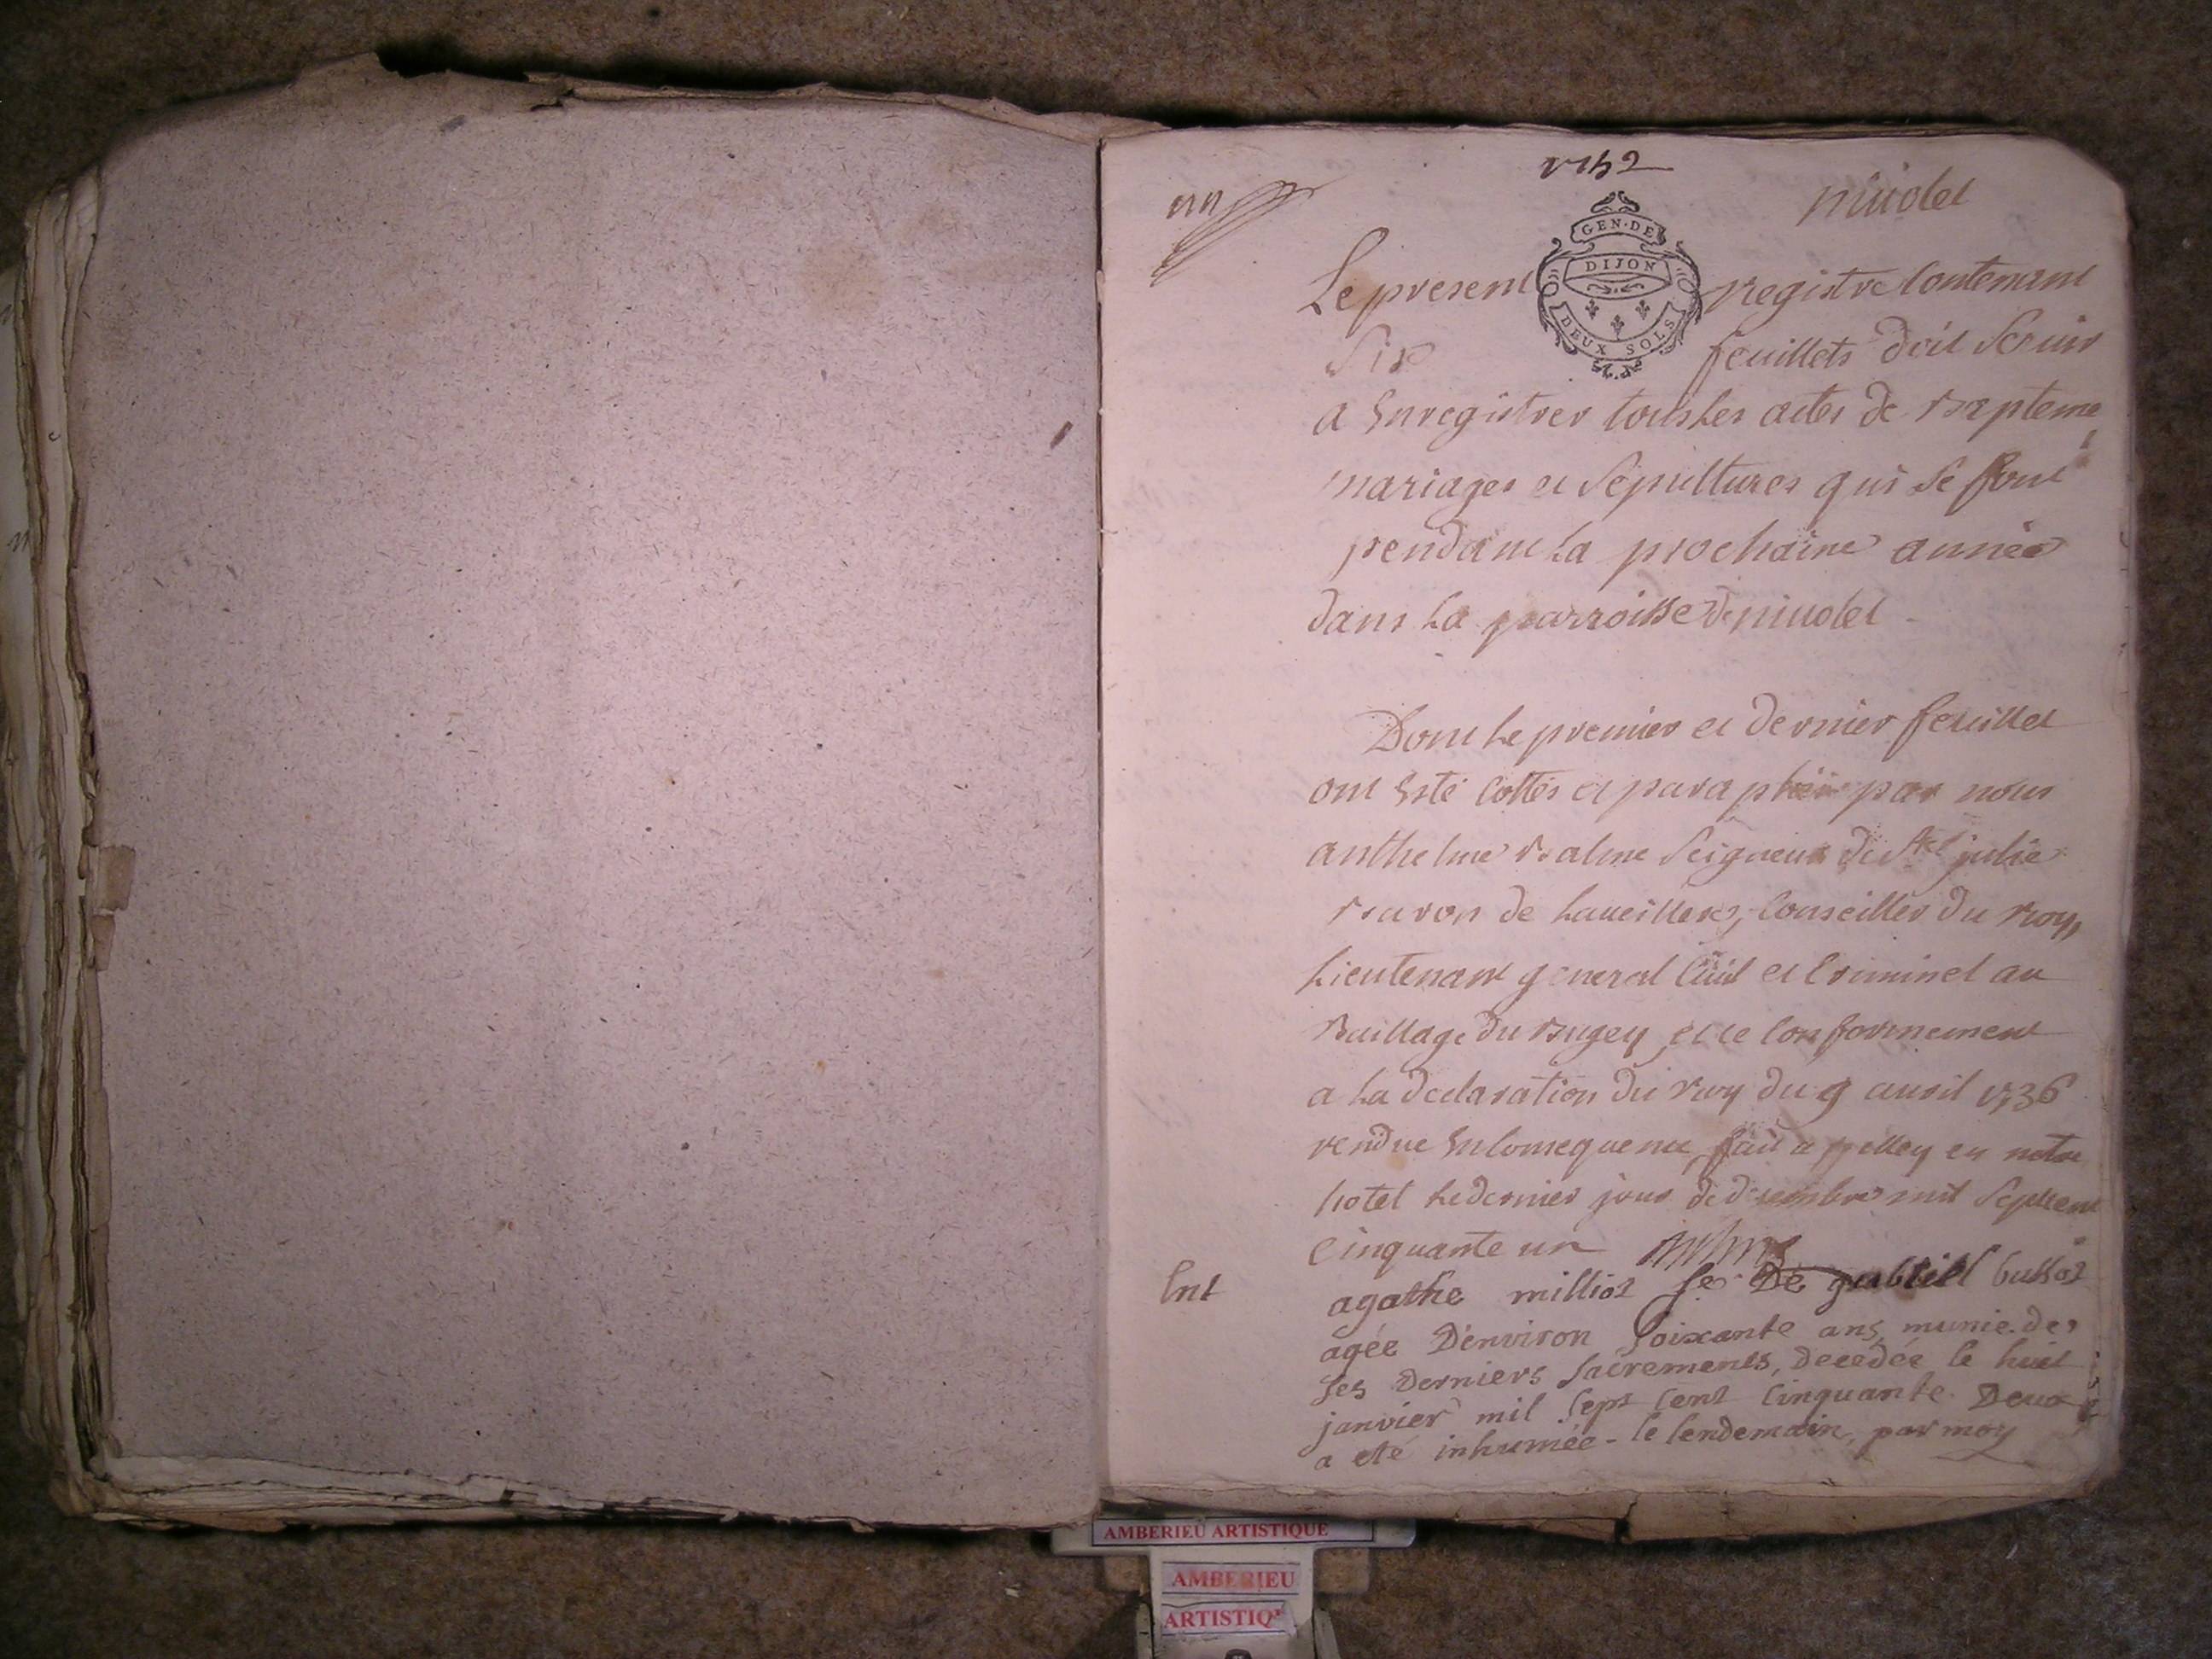 1752
niuolet
GEN·DE
DIJON
DEUX SOLS
Le present registre Contenant
Six feuillets doit Seruir
a Enregistrer tous Les actes de Bapteme
mariages et Sepultures qui se font
pendant La prochaine année
dans La parroisse de niuolet
Dont Le premier et dernier feuillet
ont Esté Cottés et paraphés par nous
anthelme Balme Seigneur de Ste julie
Baron de Laueilleres, Conseiller du Roy,
Lieutenant general Ciuil et Criminel au
Baillage du Bugey, et ce Conformement
a La declaration du roy du 9 auril 1736
rendue En Consequence, fait a Belley en notre
hotel Le dernier jour de decembre mil Sept cent
Cinquante un
Ent
agathe milliot fe De gabriel bullot
agée D'environ soixante ans, munie de
ses Derniers sacrements, decedée le huit
janvier mil sept cent cinquante Deux
a eté inhumée le lendemain, par moy
AMBERIEU ARTISTIQUE
AMBERIEU
ARTISTIQ